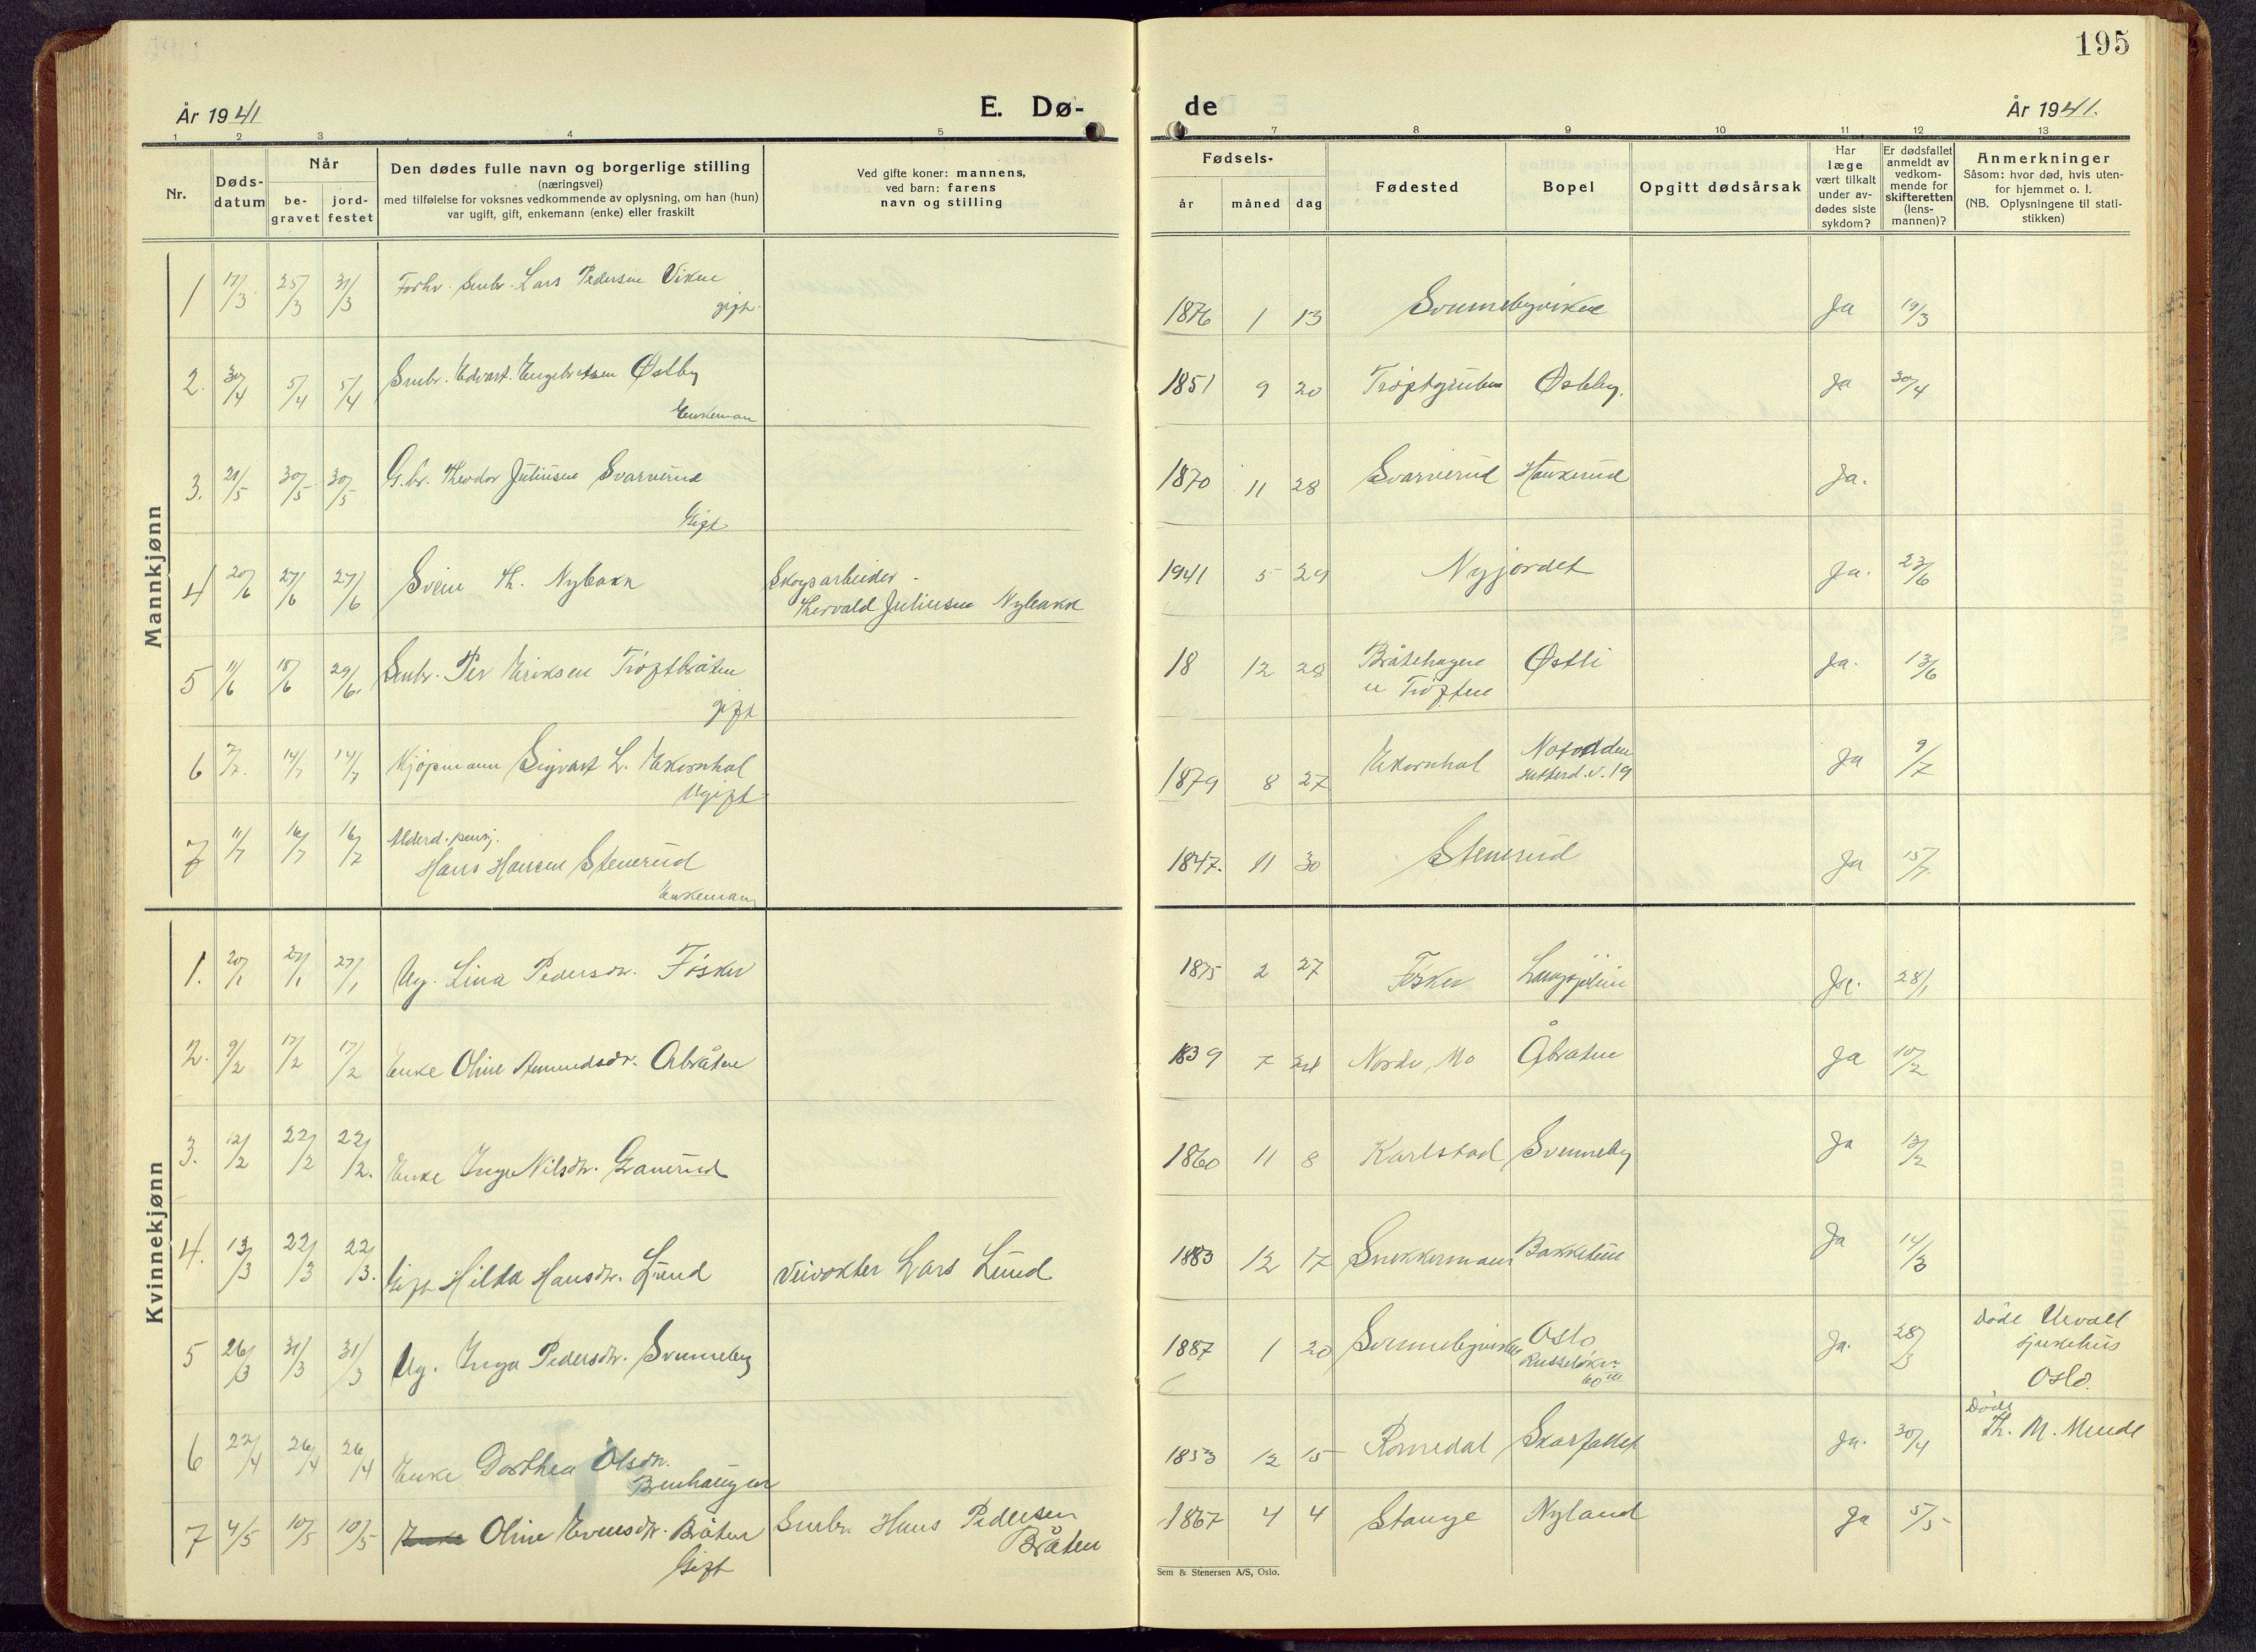 195
År 1941
E. Dø-
de
År 1941.
1 2 3 4 5 7 8 9 10 11 12 13
Nr.
Døds-
datum
Når
be-
gravet
jord-
festet
Den dødes fulle navn og borgerlige stilling
(næringsvei)
med tilføielse for voksnes vedkommende av oplysning, om han (hun)
var ugift, gift, enkemann (enke) eller fraskilt
Ved gifte koner: mannens,
ved barn: farens
navn og stilling
Fødsels-
år måned dag
Fødested
Bopel
Opgitt dødsårsak
Har
læge
vært tilkalt
under av-
dødes siste
sykdom?
Er dødsfallet
anmeldt av
vedkom-
mende for
skifteretten
(lens-
mannen)?
Anmerkninger
Såsom: hvor død, hvis uten-
for hjemmet o. l.
(NB. Oplysningene til stati-
stikken)
Mannkjønn
1 17/3 25/3 31/3 Forhv. Smbr. Lars Pedersen Viken
gift.
1876 1 13 Svennebyviken Ja 19/3
2. 30/4 5/4 5/4 Smbr. Edvart Engebretsen Østby
Enkeman
1851 9 20 Østby. Ja 30/4
3. 21/5 30/5 30/5 G.br. Theodor Juliusen Svarverud
Gift
1870 11 28 Svarverud Haukerud Ja.
4 20/6 27/6 27/6 Svein Th. Nybakk
Skogsarbeider
Thorvald Juliusen Nybakk
1941 5 29 Nyjordet Ja. 23/6
5 11/6 18/6 29/6. Smbr. Per Eriksen Trøftbråten
gift
18 12 28 Bråtehagen
u Trøften
Østli Ja. 13/6
6 7/7. 14/7 14/7 Kjøpmann Sigvart L. Ekornhol
Ugift
1879 8 27 Ekornhol Notodden
Ja 9/7
7 11/7 16/7 16/7 Alderd. pensj.
Hans Hansen Stenerud
Enkeman
1847. 11 30 Stenerud Ja 15/7
Kvinnekjønn
1. 20/1 27/1 27/1 Ug. Lina Pedersdtr. Føsker
1875 2 27 Føsker Ja. 28/1
2. 9/2 17/2 17/2 Enke Oline Amundsdtr. Åbråten
1839 7 24 Nordr. Mo Åbråten Ja 10/2
3. 12/2 22/2 22/2. Enke Inga Nilsdtr. Gaurud
1860 11 8 Karlstad Svenneby Ja 13/2
4. 13/3 22/3 22/3. Gift Hilda Hansdtr. Lund
Veivokter Lars Lund
1883 12 17 Snekkermoen Bakketun Ja 14/3
5 26/3 31/3 31/3 Ug. Inga Pedersdtr. Svenneby
1887 1 20 Svennebyviken Oslo
Russeløkv.
60 III
Ja. 28/3
Døde Ulevåll
sjukehus
Oslo.
6 22/4 26/4 26/4 Enke Dorthea Olsdtr.
Benhaugen
1853 12 15 Romedal Skarfallet Ja. 30/4
Døde
Th. M. Meudl
7 4/5 10/5 10/5 Enke Oline Evensdtr. Bråten
Gift
Smbr. Hans Pedersen
Bråten
1867 4 4 Stange Nyland Ja 5/5
Sem & Stenersen A/S, Oslo.